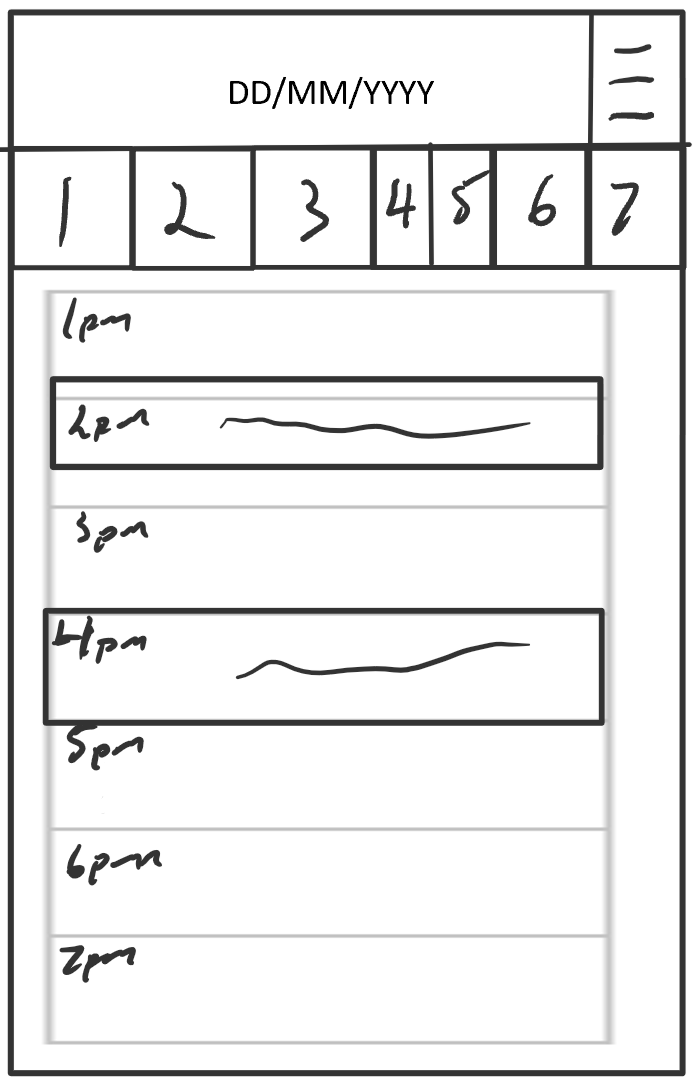 DD/MM/YYYY
1 2 3 4 5 6 7
1pm
2pm
3pm
4pm
5pm
6pm
7pm